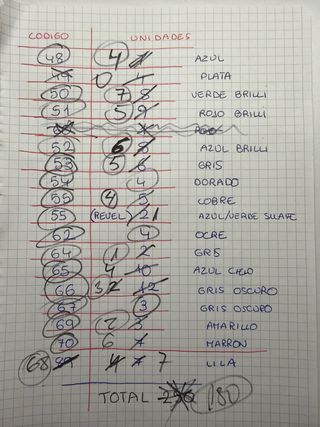 CODIGO UNIDADES
48 4 AZUL
49 0 1 PLATA
50 7 8 VERDE BRILLI
51 5 9 ROJO BRILLI
52 6 8 AZUL BRILLI
53 5 6 GRIS
54 4 DORADO
55 4 5 COBRE
55 (REVEL) 21 AZUL/VERDE SUAVE
62 4 OCRE
64 1 2 GRS
65 4 10 AZUL CIELO
66 32 12 GRIS OSCURO
67 3 GRIS OSCURO
69 2 3 AMARILLO
70 6 7 MARRON
68 4 7 7 LILA
TOTAL 250 180